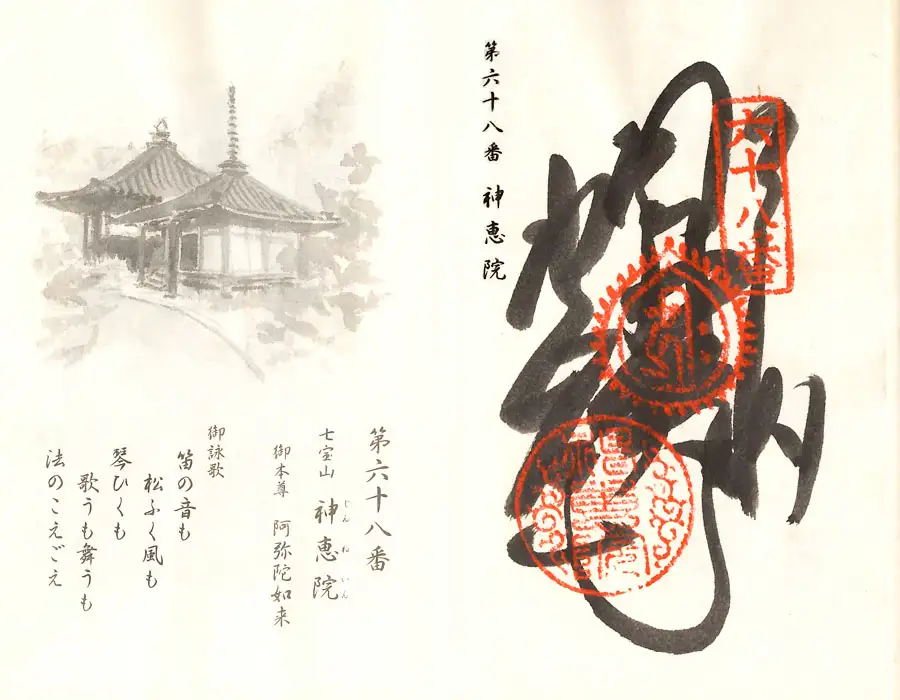 六十八番
第六十八番 神恵院
第六十八番
七宝山 神恵院
じんねいん
御本尊 阿弥陀如来
御詠歌
笛の音も
松ふく風も
琴ひくも
歌うも舞うも
法のこえごえ